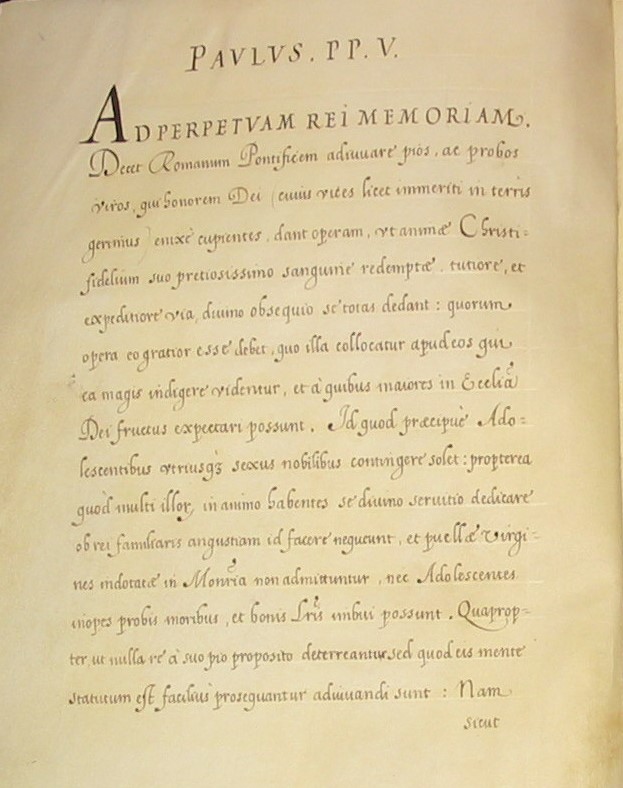 PAVLVS. PP. V.
AD PERPETVAM REI MEMORIAM.
Decet Romanum Pontificem adiuuare pios, ac probos
viros, qui honorem Dei (cuius vices licet immeriti in terris
gerimus) enixè cupientes, dant operam, vt animæ Christi-
fidelium suo pretiosissimo sanguine redemptæ, tutiore, et
expeditiore via, diuino obsequio se totas dedant: quorum
opera eo gratior esse debet, quo illa collocatur apud eos qui
ea magis indigere videntur, et à quibus maiores in Ecclia
Dei fructus expectari possunt. Id quod præcipuè Ado-
lescentibus vtriusqȝ sexus nobilibus contingere solet: propterea
quòd multi illoꝝ, in animo habentes se diuino seruitio dedicare
ob rei familiaris angustiam id facere nequeunt, et puellæ virgi-
nes indotatæ in Monria non admittuntur, nec Adolescentes
inopes probis moribus, et bonis Lris imbui possunt. Quaprop-
ter, ut nulla re à suo pio proposito deterreantur, sed quod eis mente
statutum est faciliùs prosequantur adiuuandi sunt: Nam
sicut